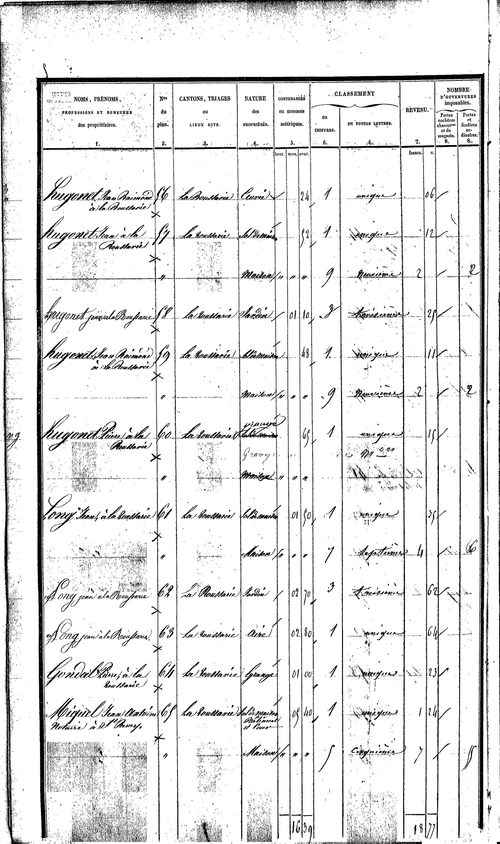 NOMS, PRÉNOMS,
PROFESSIONS ET DEMEURES
des propriétaires.
1.
Nos
du
plan.
2.
CANTONS, TRIAGES
ou
LIEUX DITS.
3.
NATURE
des
PROPRIÉTÉS.
4.
CONTENANCES
en mesures
métriques.
5.
hect. ares. cent.
CLASSEMENT
en
CHIFFRES.
6.
EN TOUTES LETTRES.
6.
REVENU.
7.
francs. c.
NOMBRE
D'OUVERTURES
imposables.
Portes
cochères
charretières
et de
magasin.
8.
Portes
et
fenêtres
ordinaires.
8.
hugonet Jean Raimond 56 La Roussarie Curié 24 1 unique 06
à la Roussarie
hugonet Jean à la 57 La Roussarie Sol de maison 52 1 unique 12
Roussarie
" Maison " " " 9 neuvième 2 2
hugonet jean à la Roussarie 58 La Roussarie Jardin 01 10 3 troisième 25
hugonet Jean Raimond 59 La Roussarie Sol de maison 48 1 unique 11
à la Roussarie
" Maison " " " 9 neuvième 2 2
hugonet Pierre à la 60 La Roussarie 65 1 unique 15
Roussarie
Grang
" Maison " " "
Long Jean, à la Roussarie 61 La Roussarie Sol de maison 01 50 1 unique 35
" Maison " " " 7 septième 4 6
Long jean à la Roussarie 62 La Roussarie Jardin 02 70 3 troisième 62
Long jean à la Roussarie 63 La Roussarie Aire 02 80 1 unique 64
Gondal Pierre, à la 64 La Roussarie Grange 01 00 1 unique 23
Roussarie
Miquel Jean Antoine 65 La Roussarie Sol de maison 05 40 1 unique 1 24
Notaire à St
Bâtiment
et Cour
" Maison " " " 5 cinquième 7
16 39 18 77